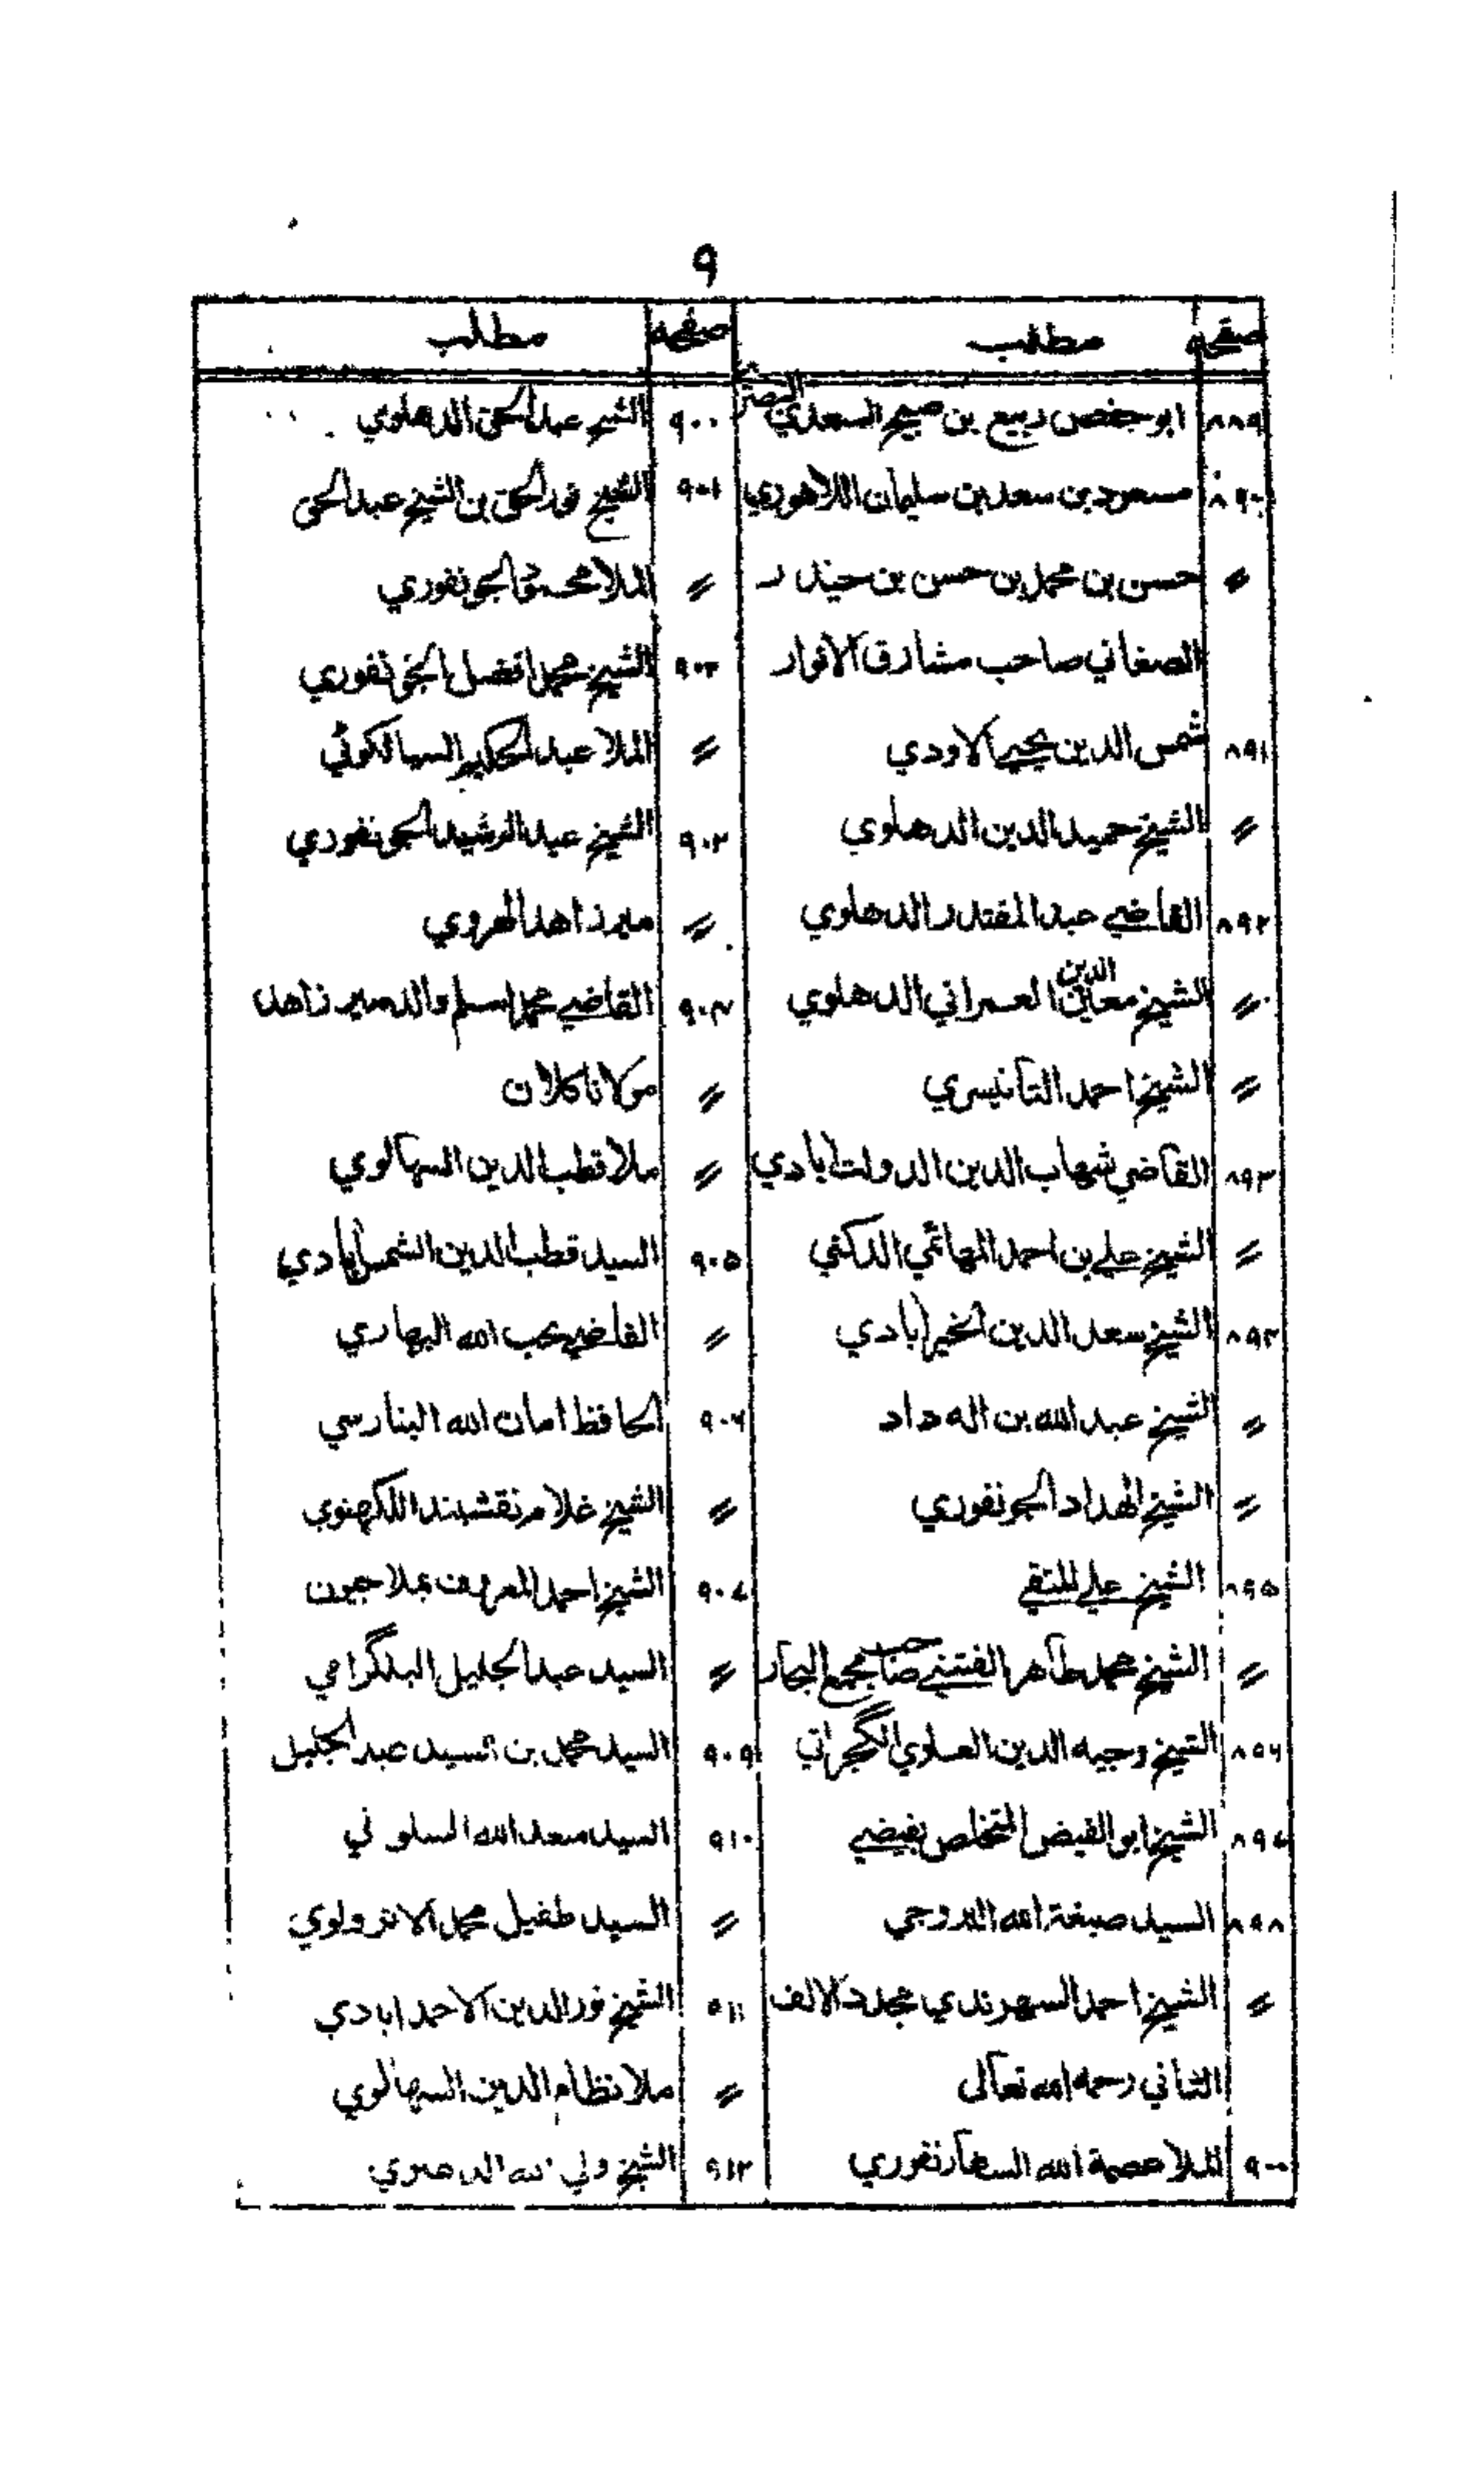 ٩
صفحه مطالب صفحه مطالب
٨٨٩ ابو حفص ربيع بن صبيح السعدي البصري ٩٠٠ الشيخ عبد الحق الدهلوي
٨٩٠ مسعود بن سعد بن سليمان اللاهوري ٩٠١ الشيخ نور الحق بن الشيخ عبد الحق
〃 حسن بن محمد بن حسن بن حيدر 〃 الملا محمود الجونفوري
الصغاني صاحب مشارق الانوار ٩٠٢ الشيخ محمد افضل الجونفوري
٨٩١ شمس الدين يحيى الاودي 〃 الملا عبد الحكيم السيالكوتي
〃 الشيخ حميد الدين الدهلوي ٩٠٣ الشيخ عبد الرشيد الجونفوري
٨٩٢ القاضي عبد المقتدر الدهلوي 〃 ميرزاهد الهروي
〃 الشيخ معين الدين العمراني الدهلوي ٩٠٤ القاضي محمد اسلم والد مير زاهد
〃 الشيخ احمد التانيسري 〃 مولانا كلان
٨٩٣ القاضي شهاب الدين الدولت ابادي 〃 ملا قطب الدين السهالوي
〃 الشيخ علي بن احمد المهائمي الدكني ٩٠٥ السيد قطب الدين الشمس آبادي
٨٩٤ الشيخ سعد الدين الخير آبادي 〃 القاضي محب الله البهاري
〃 الشيخ عبد الله بن اله داد ٩٠٦ الحافظ امان الله البنارسي
〃 الشيخ الهداد الجونفوري 〃 الشيخ غلام نقشبند اللكهنوي
٨٩٥ الشيخ علي المتقي ٩٠٧ الشيخ احمد المعروف بملا جيون
〃 الشيخ محمد طاهر الفتني صاحب مجمع البحار 〃 السيد عبد الجليل البلگرامي
٨٩٦ الشيخ وجيه الدين العلوي الگجراتي ٩٠٩ السيد محمد بن السيد عبد الجليل
٨٩٧ الشيخ ابو الفيض المتخلص بفيضي ٩١٠ السيد سعد الله السلوني
٨٩٨ السيد صبغة الله البروجي 〃 السيد طفيل محمد الاترولوي
〃 الشيخ احمد السهرندي مجدد الالف ٩١١ الشيخ نور الدين الاحمد ابادي
الثاني رحمه الله تعالى 〃 ملا نظام الدين السهالوي
٩٠٠ الملا عصمة الله السهارنفوري ٩١٢ الشيخ ولي الله الدهلوي